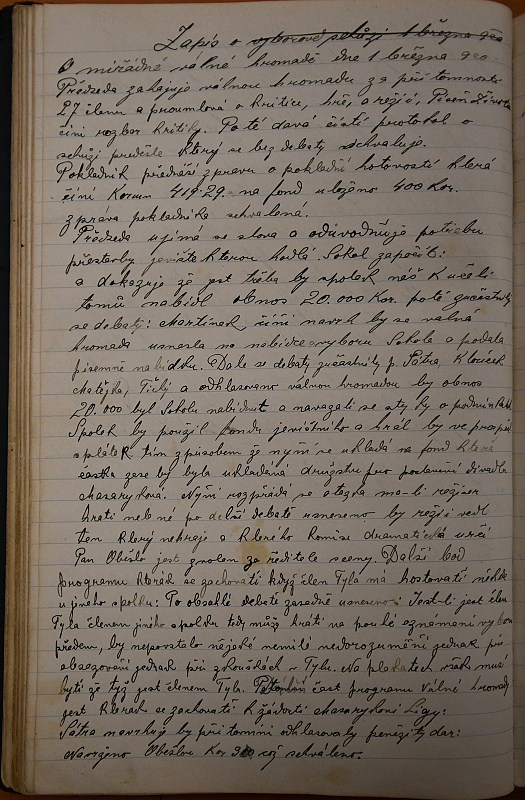 Zápis o výborové schůzi 1 března 920
O mimřádné valné hromadě dne 1 března 920
Předseda zahajuje valnou hromadu za přítomnosti
27 členu a promlová o kritice, hře, a režii, Píseň života
činí rozbor kritiky. Poté dává čísti protokol o
schuzi predešle který se bez debaty schvaluje.
Pokladník přednáší zpravu o pokladní hotovosti která
činí Korun 419·29. na fond uloženo 400 Kor.
zprava pokladníka schválená.
Předseda ujímá se slova a odůvodňuje potřebu
přestavby jeviště kterou hodlá Sokol započíti:
a dokazuje že jest třeba by spolek náš k účeli
tomů nabídl obnos 20.000 Kor. poté zúčastnily
se debaty: Martínek činí navrh by se valná
hromada usnesla na nabídce výboru Sokola a podala
písemně nabídku. Dale se debaty zúčastnily p. Šátra, Klouček
Matějka, Tichý a odhlasovano valnou hromadou by obnos
20.000 byl Sokolu nabídnut a navazati se styky o podmínkách.
Spolek by použil fondu jevištního a hrál by ve prospěch
splátek tím způsobem že nyní se ukládá na fond která
částka zase by byla ukládaná družstvu pro postavení divadla
Masarykova. Nyní rozpřádá se otázka má-li režiser
hrati neb né po delší debatě usneseno by režii vedl
ten který nehraje a kterého komise dramatická určí
Pan Obešlo jest zvolen za ředitele sceny. Další bod
programu kterak se zachovati když člen Tyla má hostovati někde
u jineho spolku: Po obsáhlé debatě zasedně usneseno: Jest-li jest člen
Tyla členem jiného spolku tedy může hráti na pouhé oznámení výboru
předem, by nepovstalo nějaké nemilé nedorozumění jednak při
obsazování jednak při zkouškách v Tylu. Na plakátech však musí
býti že týž jest členem Tyla. část programu Valné hromady
jest kterak se zachovati k žádosti Masarykovi Ligy:
Šátra navrhuj by přítomní odhlasovaly peněžitý dar:
Navrženo Obešlou Kor což schváleno.